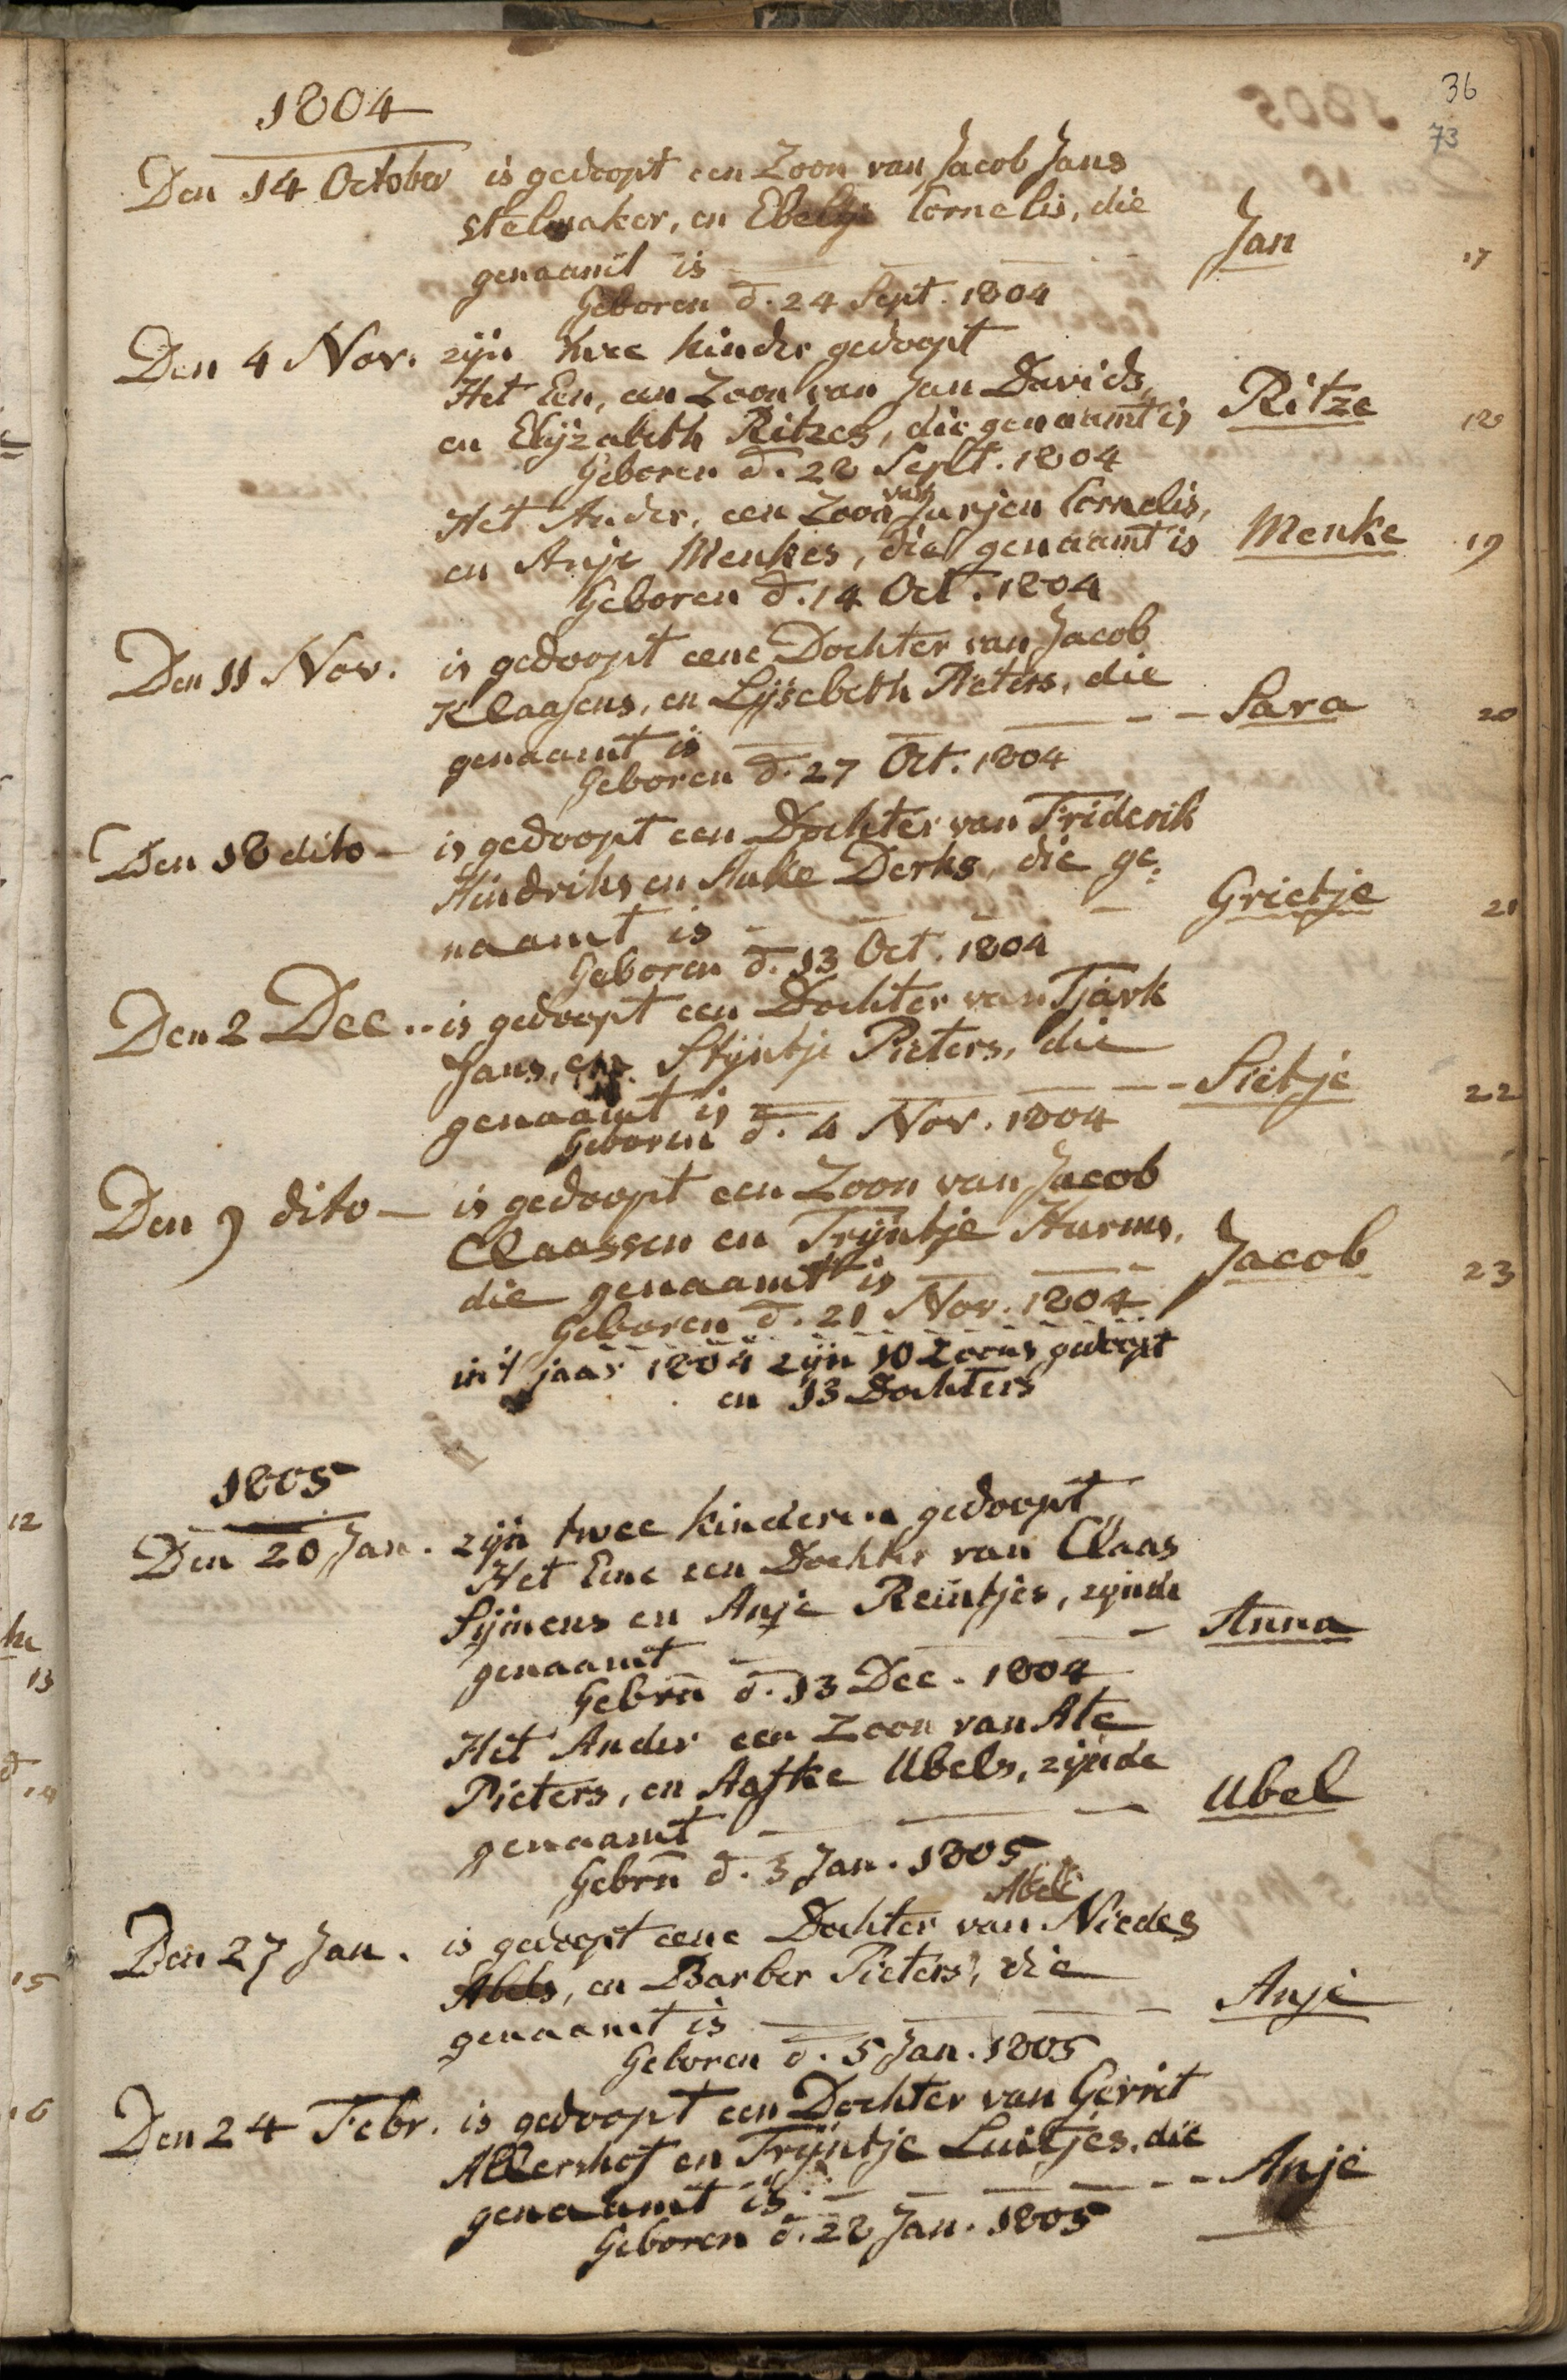 36
73
1804
Den 14 October is gedoopt een Zoon van Jacob Jans
stelmaker, en Ebeltje Cornelis, die
genaamt is — — — Jan 17
Geboren d. 24 Sept. 1804
Den 4 Nov. zijn twee kinder gedoopt
Het Een, een Zoon van Jan Davids,
en Elijzabeth Ritzes, die genaamt is Ritze 18
Geboren d. 28 Sept. 1804
Het Ander, een Zoon van Jurjen Cornelis,
en Anje Menkes, die genaamt is Menke 19
Geboren d. 14 Oct. 1804
Den 11 Nov. is gedoopt eene Dochter van Jacob
Klaasens, en Lijsebeth Pieters, die
genaamt is — — — Sara 20
Geboren d. 27 Oct. 1804
Den 18 dito — is gedoopt een Dochter van Friderik
Hindriks en Auke Derks, die ge:
naamt is — — — Grietje 21
Geboren d. 13 Oct. 1804
Den 2 Dec. is gedoopt een Dochter van Tjark
Jans, en Stijntje Pieters, die
genaamt is — — — Sietje 22
Geboren d. 4 Nov. 1804
Den 9 dito — is gedoopt een Zoon van Jacob
Claassen en Trijntje Harms,
die genaamt is — — Jacob 23
Geboren d. 21 Nov. 1804
in 't jaar 1804 zijn 10 Zoons gedoopt
en 13 Dochters
1805
Den 20 Jan. zijn twee kinderen gedoopt
Het Eene een Dochter van Claas
Sijmens en Anje Reintjes, zijnde
genaamt — — — Anna
Gebrn d. 13 Dec. 1804
Het Ander een Zoon van Ate
Pieters, en Aafke Ubels, zijnde
genaamt — — — Ubel
Gebrn d. 3 Jan. 1805
Abel
Den 27 Jan. is gedoopt eene Dochter van Niedes
Abels, en Barber Pieters, die
genaamt is — — — Anje
Geboren d. 5 Jan. 1805
Den 24 Febr. is gedoopt een Dochter van Gerrit
Allershof en Trijntje Luitjes, die
genaamt is — — — Anje
Geboren d. 28 Jan. 1805